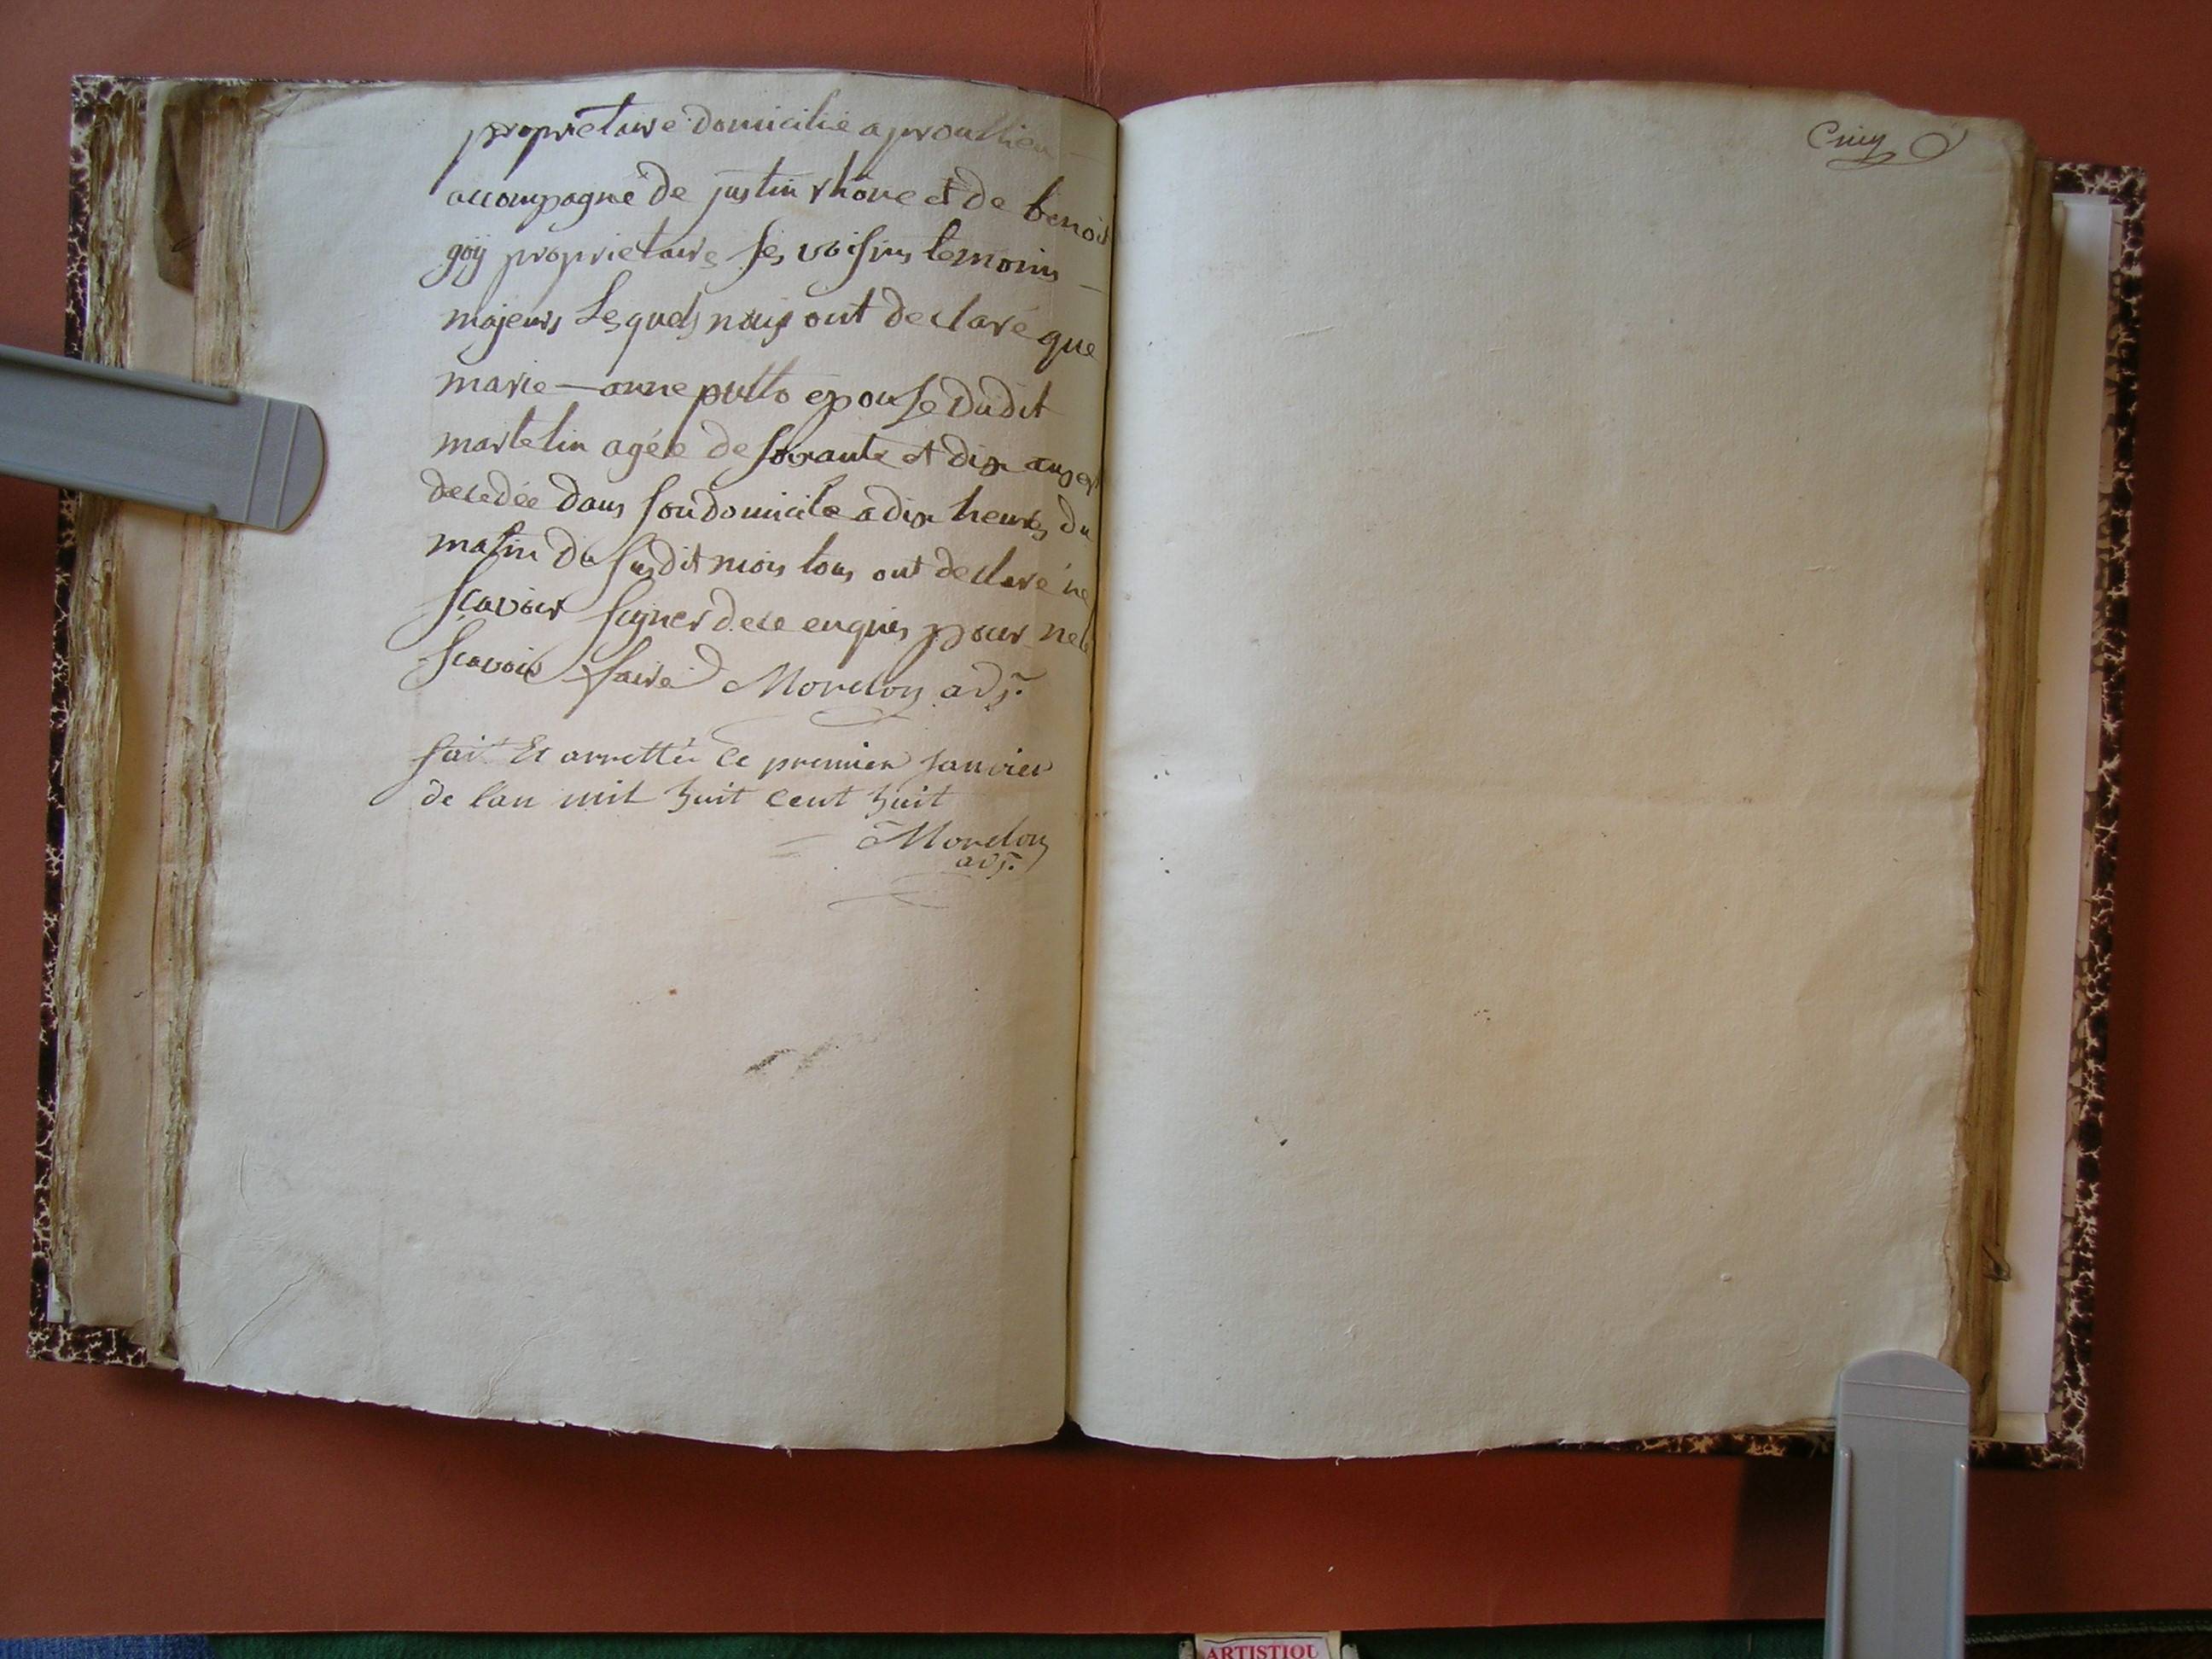 propriétaire domicilié a proullieu
accompagné de justin rhône et de benoit
goÿ propriétaire ses voisins temoins
majeurs Lesquels nous ont declaré que
marie - anne epouse dudit
martelin agée de soixante et dix ans est
decedée dans son domicile a dix heures du
matin du susdit mois tous ont declaré ne
sçavoir signer de ce enquis pour ne le
scavoir faire Morelon adj.t
fait Et arretté Le premier Janvier
de lan mil huit cent huit
Morelon
adj.t
Cinq
ARTISTIQU